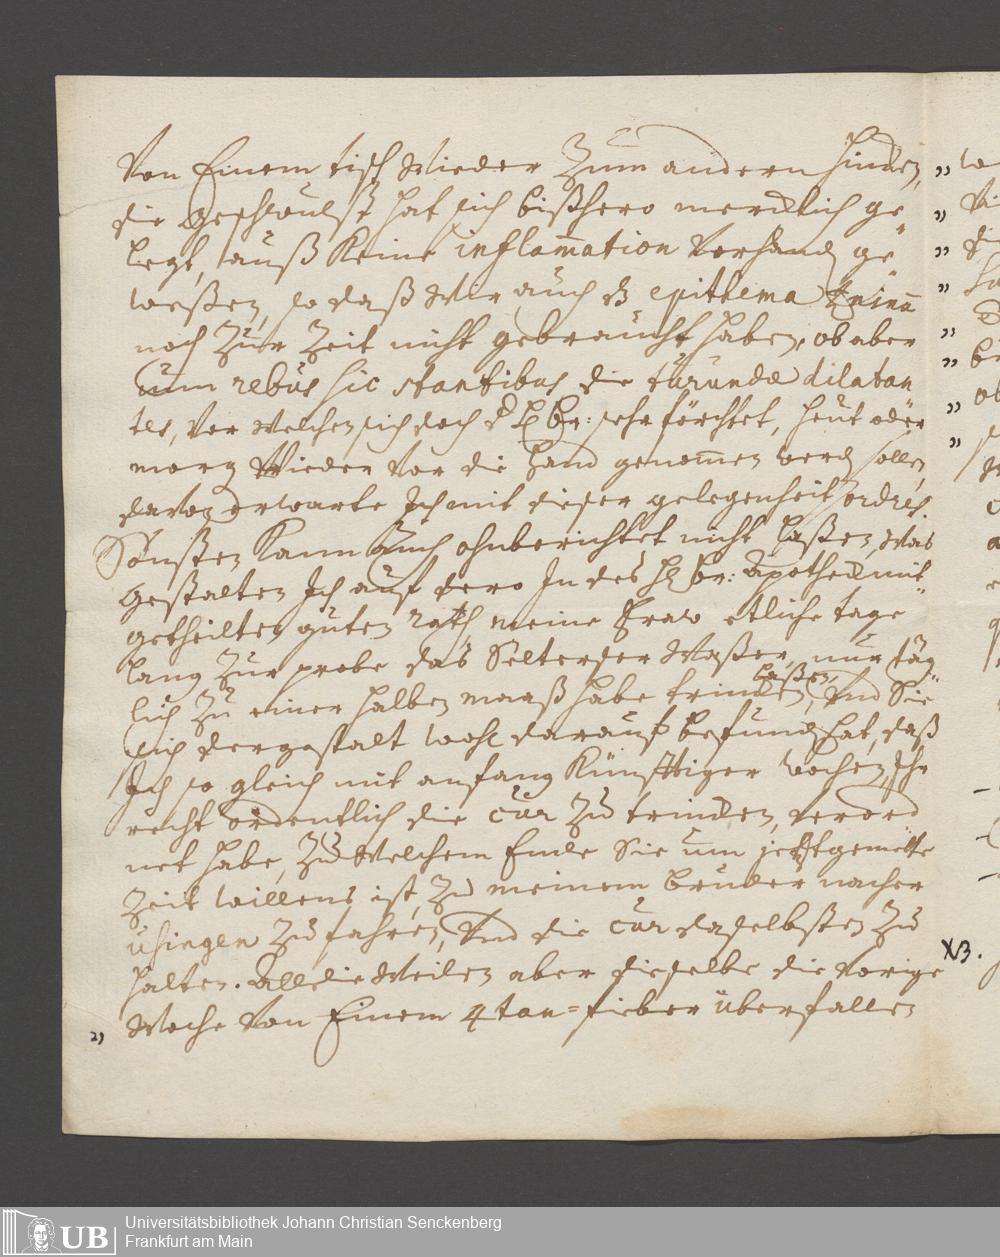 Von Einem tisch Wieder Zum andern hinden,
die Geschwulst hat sich bißhero mercklich ge
legt, auch Keine inflam̅ation Vorhand ge
weßen, so daß Wir auch dz epithema
noch Zur Zeit nicht gebraucht haben, ob aber
num rebus sic stantibus die turundæ dilatan
tes, Vor Welchen sich doch d H Br: sehr förchtet, heut oder
morg Wieder Vor die Hand genom̅en werd sollen,
davon erwarte Ich mit dieser gelegenheit ordres.
Sonsten Kann auch ohnberichtet nicht Laßen, Was
gestalten Ich auf dero In des H Br: Apotheck mit
getheilten guten rath meine Fraw etliche tage
lang Zur probe das Selterser Waßer, nur täg
lich Zu einer halben maaß habe trincken laßen, Und Sie
sich dergestalt wohl darauf befund hat, daß
Ich so gleich mit anfang Künfftiger wochen, Ihr
recht ordentlich die cur Zu trincken, verord
net habe, Zu Welchem Ende Sie um jetztgemelte
Zeit willens ist, Zu meinem bruder nacher
Usingen Zu fahren, Und die cur daselbsten Zu
halten. Alldieweilen aber dieselbe die Vorige
Woche Von Einem 4tan=fieber überfallen
2)
N3.
Universitätsbibliothek Johann Christian Senckenberg
Frankfurt am Main
UB